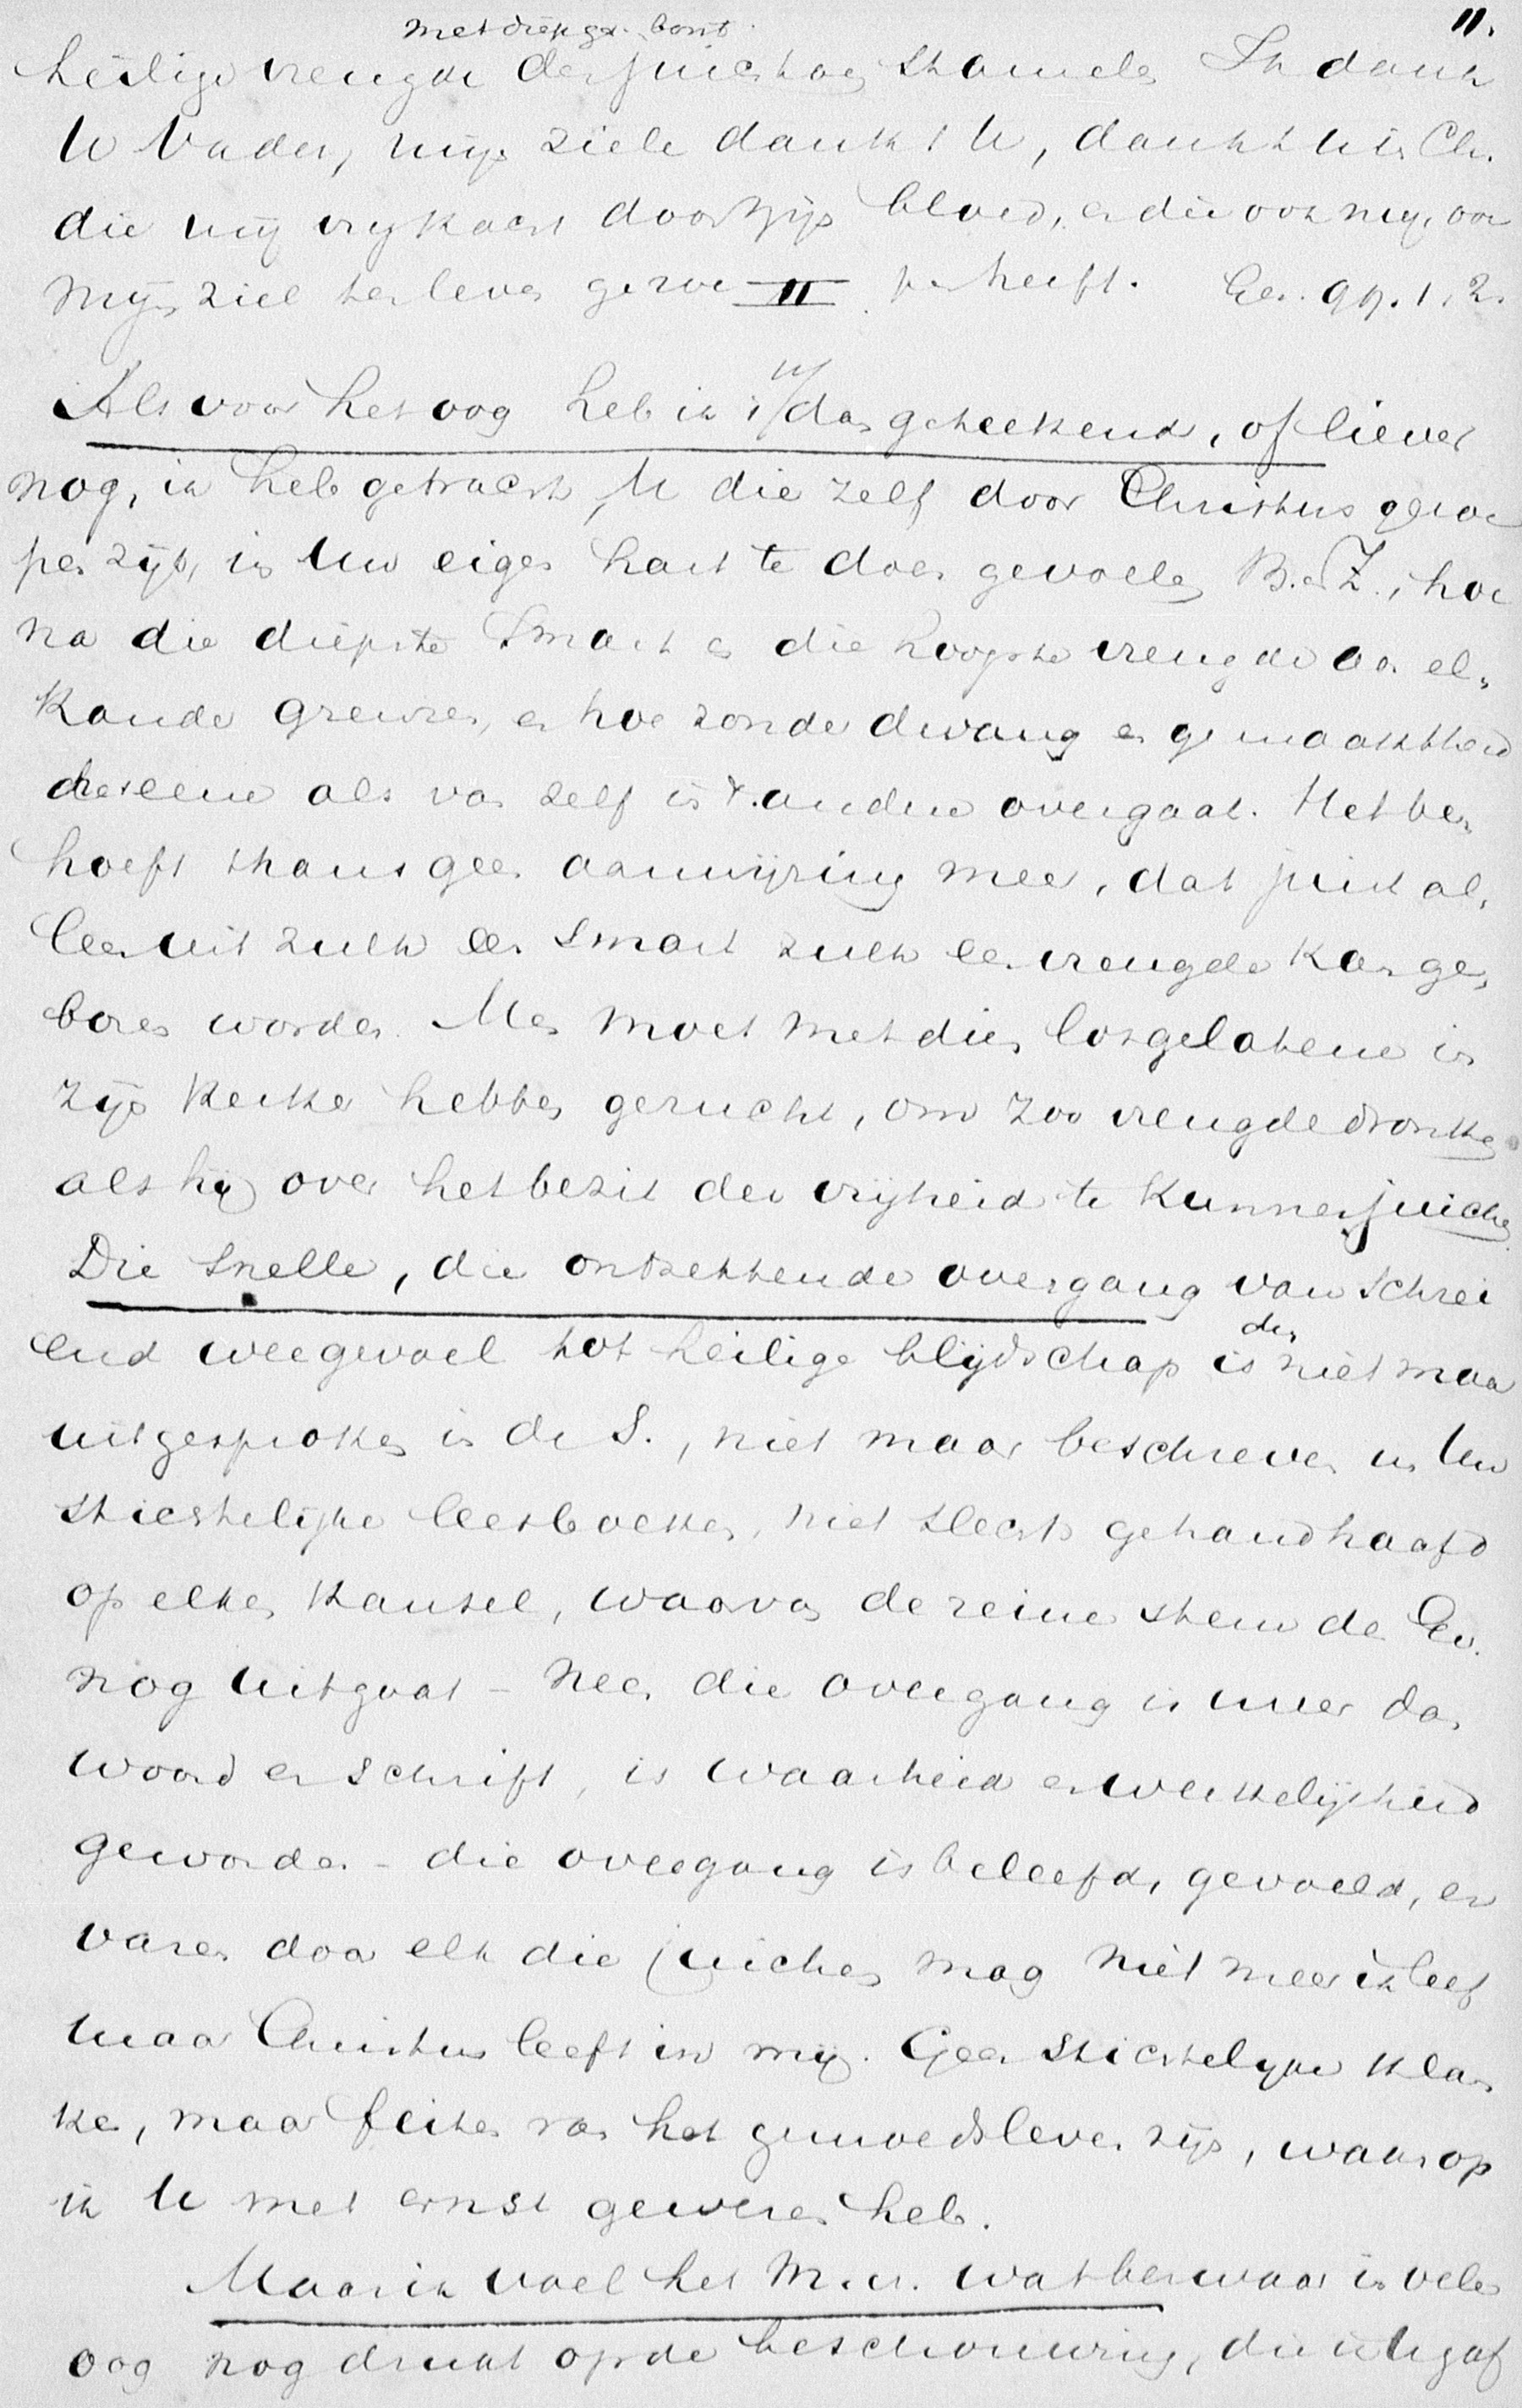 11.
met diepgr. borst
heilige vreugde der juichtoon stamelen Ik dank
U Vader, mijn ziele dankt U, dankt U in Ch.
die mij vrykocht door Zijn bloed, en die ook mijn, ook
mijn ziel ten leven geroe II pen heeft. Gez. 99. 1. 2.
Als voor het oog heb ik 't U dan geteekend, of liever
nog, ik heb getracht, U die zelf door Christus geroe
pen zijt, in Uw eigen hart te doen gevoelen B. en Z., hoe
na die diepste smart en die hoogste vreugde aan el-
kander grenzen, en hoe zonder dwang en gemaaktheid
het eene als van zelf in 't andere overgaat. Het be-
hoeft thans geen aanwijzing meer, dat juist al-
leen uit zulk een smart zulk een vreugde kan ge-
boren worden. Men moet met dien losgelatene in
zijn kerker hebben gezucht, om zoo vreugdedronken
als hij over het bezit der vrijheid te kunnen juichen
Die snelle, die ontzettende overgang van schrei
end weegevoel tot heilige blijdschap is dan niet maar
uitgesproken in de S., niet maar beschreven in Uw
stichtelijke leesboeken, niet slechts gehandhaafd
op elken kansel, waarvan de reine stem des Ev.
nog uitgaat – neen die overgang is meer dan
woord en schrift, is waarheid en werkelijkheid
geworden – die overgang is beleefd, gevoeld, er
varen door elk die juichen mag niet meer ik leef
maar Christus leeft in mij. Geen stichtelyke klan
ken, maar feiten van het gemoedsleven zijn, waarop
ik U met ernst gewezen heb.
Maar ik voel het M. V. wat bezwaar in veler
oog nog drukt op de beschouwing, die ik U gaf